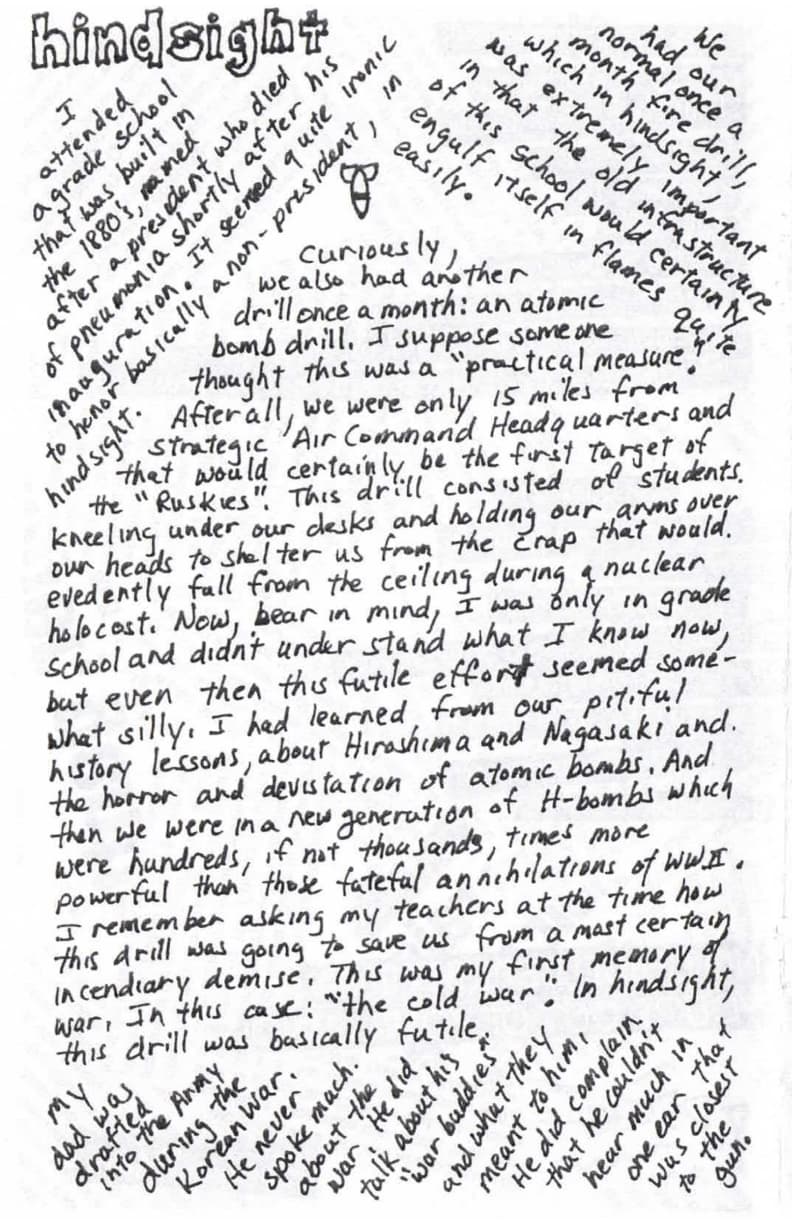 hindsight
I
attended
a grade school
that was built in
the 1880's, named
after a president who died
of pneumonia shortly after his
inauguration. It seemed quite ironic
to honor basically a non-president, in
hindsight.
We
had our
normal once a
month fire drill,
which in hindsight,
was extremely important
in that the old infrastructure
of this school would certainly
engulf itself in flames quite
easily.
Curiously,
we also had another
drill once a month: an atomic
bomb drill. I suppose someone
thought this was a "practical measure".
After all, we were only 15 miles from
Strategic Air Command Headquarters and
that would certainly be the first target of
the "Ruskies". This drill consisted of students
kneeling under our desks and holding our arms over
our heads to shelter us from the crap that would
evedently fall from the ceiling during a nuclear
holocost. Now, bear in mind, I was only in grade
school and didn't understand what I know now,
but even then this futile effort seemed some-
what silly. I had learned from our pitiful
history lessons, about Hiroshima and Nagasaki and
the horror and devistation of atomic bombs. And
then we were in a new generation of H-bombs which
were hundreds, if not thousands, times more
powerful than those fateful annihilations of WWII.
I remember asking my teachers at the time how
this drill was going to save us from a most certain
incendiary demise. This was my first memory of
war. In this case: "the cold war". In hindsight,
this drill was basically futile.
My
dad was
drafted
into the Army
during the
Korean War.
He never
spoke much
about the
war. He did
talk about his
"war buddies"
and what they
meant to him.
He did complain
that he couldn't
hear much in
one ear that
was closest
to the
gun.